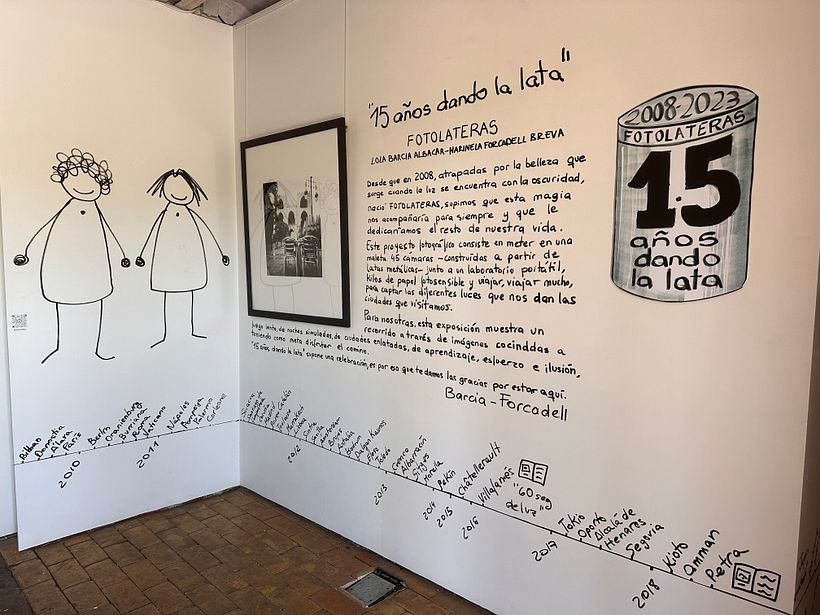 "15 años dando la lata"
FOTOLATERAS
LOLA BARCIA ALBACAR-MARINELA FORCADELL BREVA
Desde que en 2008, atrapadas por la belleza que
surge cuando la luz se encuentra con la oscuridad,
nació FOTOLATERAS, supimos que esta magia
nos acompañaría para siempre y que le
dedicaríamos el resto de nuestra vida.
Este proyecto fotográfico consiste en meter en una
maleta 45 cámaras -construídas a partir de
latas metálicas- junto a un laboratorio portátil,
kilos de papel fotosensible y viajar, viajar mucho,
para captar las diferentes luces que nos dan las
ciudades que visitamos.
Para nosotras, esta exposición muestra un
recorrido a través de imágenes cocinddas a
fuego lento, de noches simuladas, de ciudades enlatadas, de aprendizaje, esfuerzo e ilusión,
teniendo como meta disfrutar el camino.
"15 años dando la lata" supone una celebración, es por eso que te damos las gracias por estar aquí.
Barcia-Forcadell
2008-2023
FOTOLATERAS
15
años
dando
la lata
Bilbao
París
2010
Berlín
Oranienburg
Burriana
Roma
Vaticano
2011
Nápoles
Pompeya
Palermo
Corleone
2012
Sintra
Sevilla
Amsterdam
Brujas
Toledo
2013
Cuenca
Albarracín
Sitges
Morella
2014
Pekín
2015
Châtellerault
2016
Villafamés
"60 seg
de luz"
2017
Tokio
Oporto
Alcalá de
Henares
Segovia
2018
Kioto
Amman
Petra